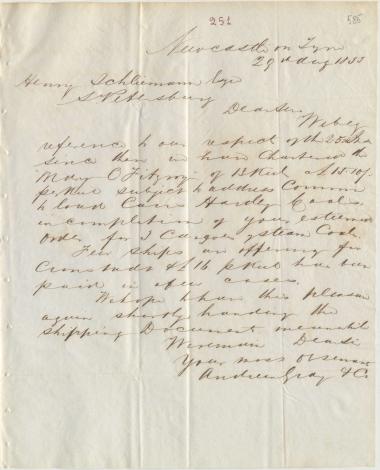 251
585
Newcastle on Tyne
29th Aug 1855
Henry Schliemann Esqe
St Petersburg
Dear Sir
We beg
reference to our respect of the 25th
since then we have Chartered the
Mary of 13 Keel at
p Keel subject to address Commn
to load Hartley Coals
in completion of your esteemed
order for 3 Cargoes of steam Coal
Few ships are offering for
Cronstadt & £16 p Keel has been
paid in a few cases.
We hope to have the pleasure
again shortly handing the
Shipping Document meanwhile
We remain Dear Sir
Your most Ob servant
Andrew Gray & Co